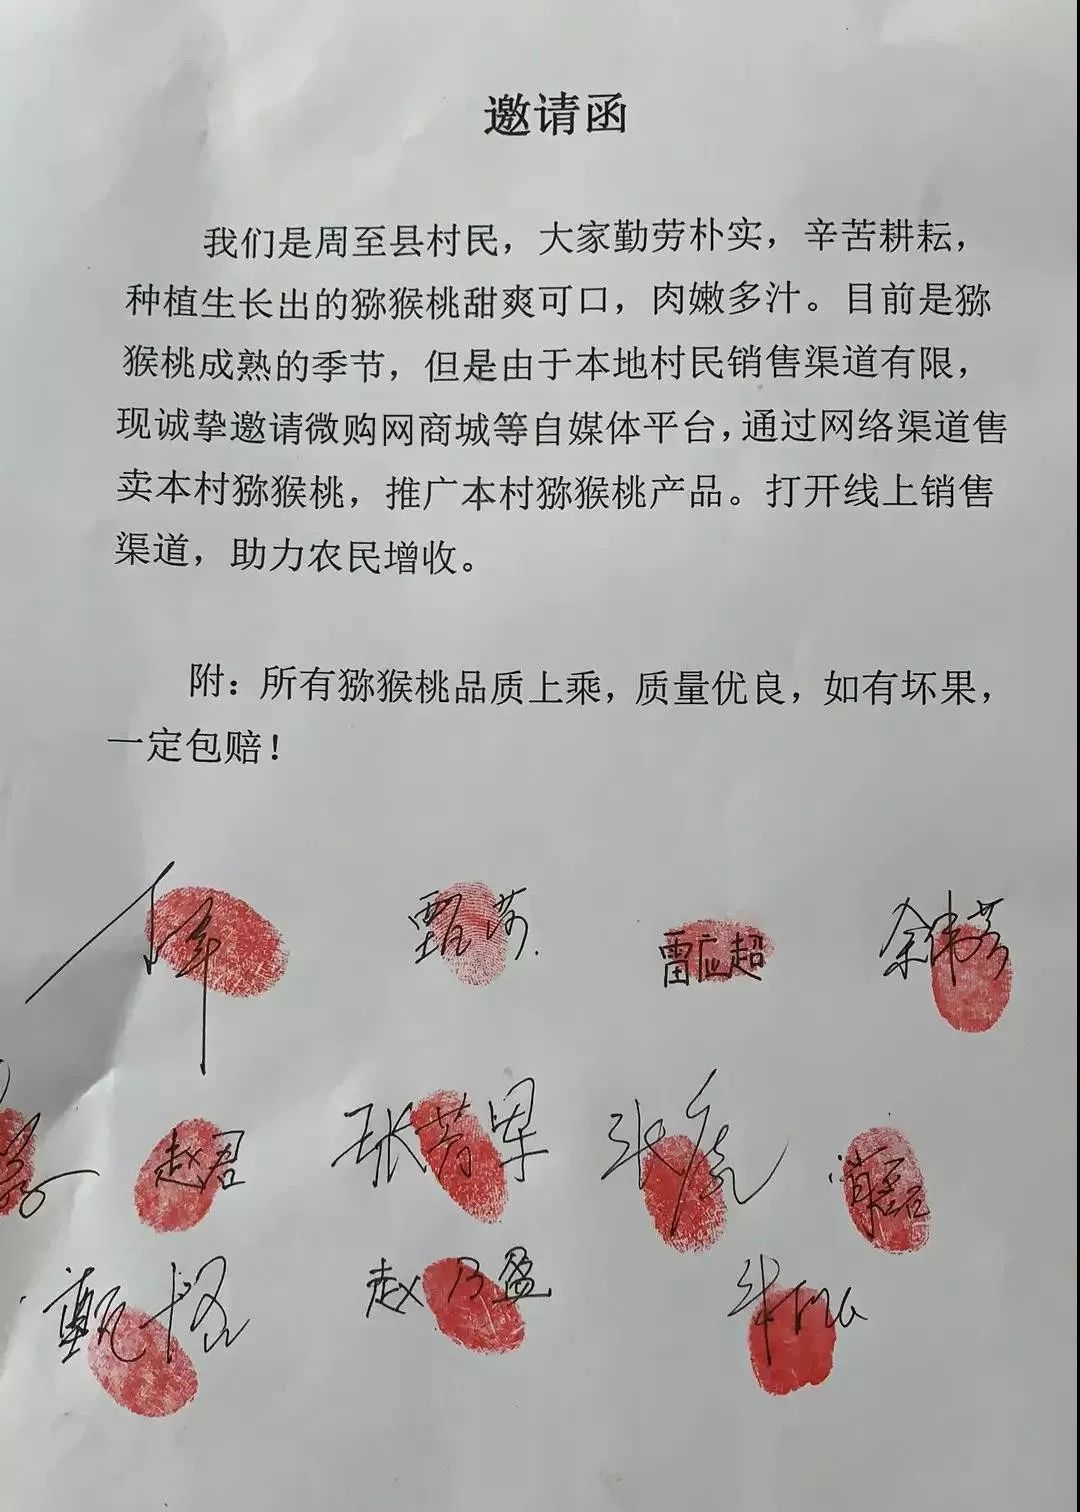 邀请函
我们是周至县村民，大家勤劳朴实，辛苦耕耘，
种植生长出的猕猴桃甜爽可口，肉嫩多汁。目前是猕
猴桃成熟的季节，但是由于本地村民销售渠道有限，
现诚挚邀请微购网商城等自媒体平台，通过网络渠道售
卖本村猕猴桃，推广本村猕猴桃产品。打开线上销售
渠道，助力农民增收。
附：所有猕猴桃品质上乘，质量优良，如有坏果，
一定包赔！
雷应超
赵君 张芳 张虎
赵乃盈